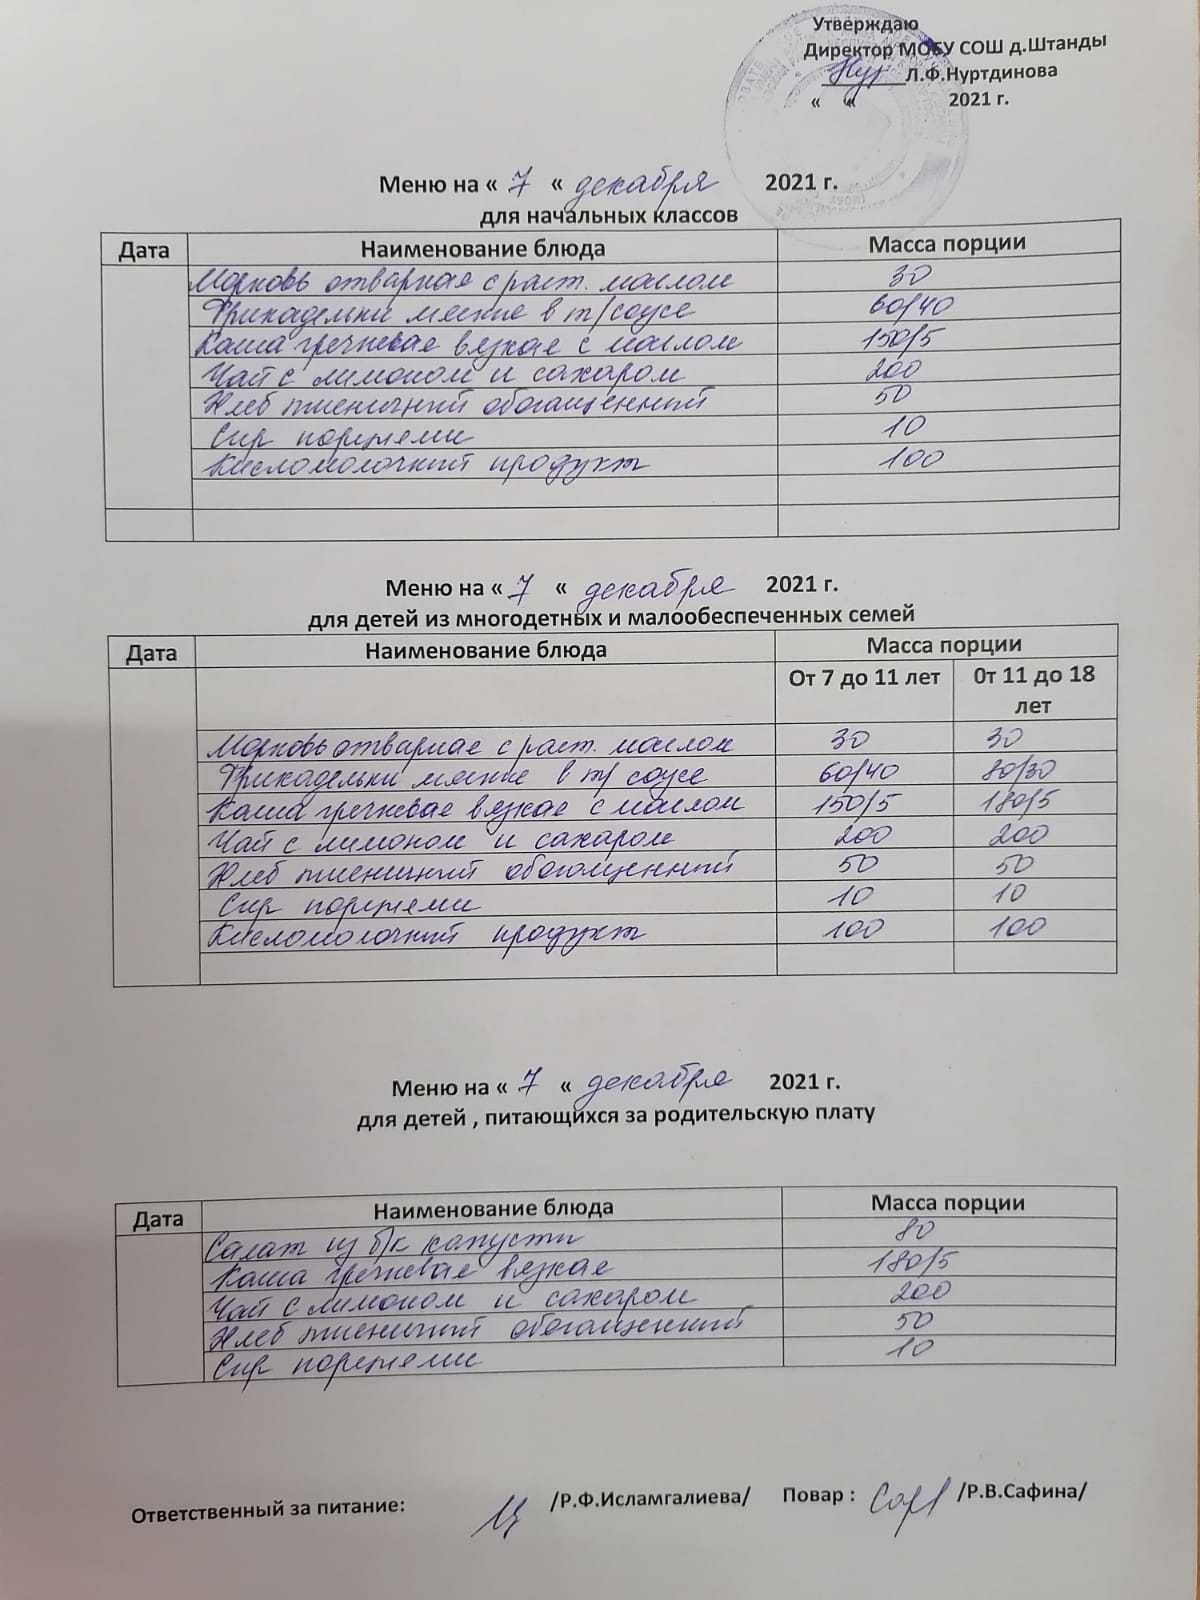 Утверждаю
Директор МОБУ СОШ д.Штанды
Л.Ф.Нуртдинова
« « 2021 г.
Меню на « 7 « декабря 2021 г.
для начальных классов
Дата Наименование блюда Масса порции
Морковь отварная с раст. маслом 30
Фрикадельки мясные в т/соусе 60/40
Каша гречневая вязкая с маслом 150/5
Чай с лимоном и сахаром 200
Хлеб пшеничный обогащенный 50
Сыр порциями 10
Кисломолочный продукт 100
Меню на « 7 « декабря 2021 г.
для детей из многодетных и малообеспеченных семей
Дата Наименование блюда Масса порции
От 7 до 11 лет 0т 11 до 18
лет
Морковь отварная с раст. маслом 30 30
Фрикадельки мясные в т/ соусе 60/40 80/30
Каша гречневая вязкая с маслом 150/5 180/5
Чай с лимоном и сахаром 200 200
Хлеб пшеничный обогащенный 50 50
Сыр порциями 10 10
Кисломолочный продукт 100 100
Меню на « 7 « декабря 2021 г.
для детей , питающихся за родительскую плату
Дата Наименование блюда Масса порции
Салат из б/к капусты 80
Каша гречневая вязкая 180/5
Чай с лимоном и сахаром 200
Хлеб пшеничный обогащенный 50
Сыр порциями 10
Ответственный за питание: /Р.Ф.Исламгалиева/ Повар : /Р.В.Сафина/